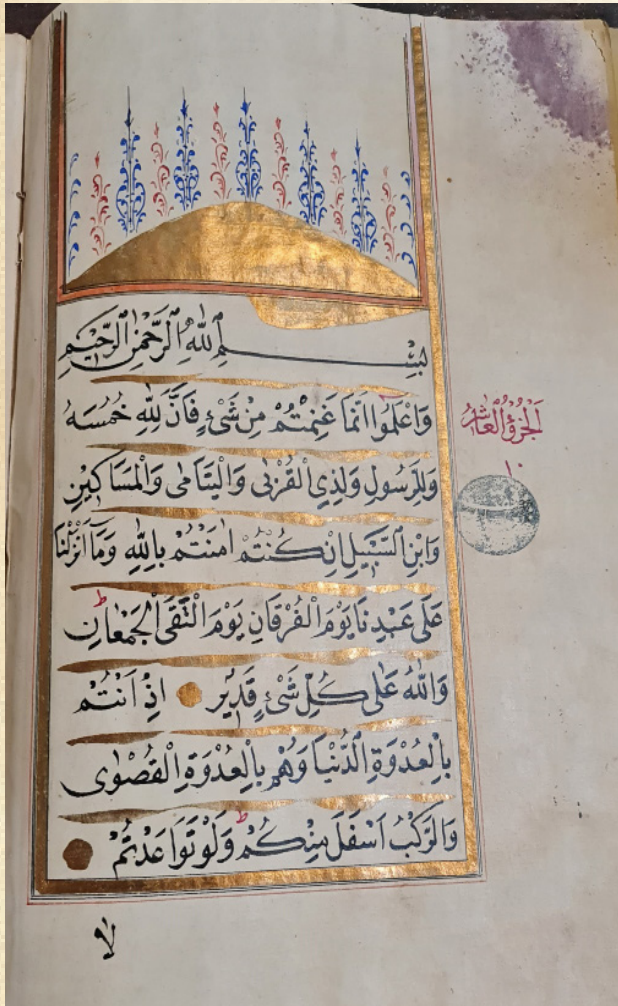 بِسْمِ اللهِ الرَّحْمٰنِ الرَّحِيْمِ
وَاعْلَمُوا اَنَّمَا غَنِمْتُمْ مِنْ شَیْءٍ فَاَنَّ لِلّٰهِ خُمُسَهُ
وَلِلرَّسُولِ وَلِذِي الْقُرْبٰى وَالْيَتَامٰى وَالْمَسَاكِيْنِ
وَابْنِ السَّبِيْلِ اِنْ كُنْتُمْ اٰمَنْتُمْ بِاللّٰهِ وَمَا اَنْزَلْنَا
عَلٰى عَبْدِنَا يَوْمَ الْفُرْقَانِ يَوْمَ الْتَقَى الْجَمْعَانِ ط
وَاللّٰهُ عَلٰى كُلِّ شَیْءٍ قَدِيْرٌ اِذْ اَنْتُمْ
بِالْعُدْوَةِ الدُّنْيَا وَهُمْ بِالْعُدْوَةِ الْقُصْوٰى
وَالرَّكْبُ اَسْفَلَ مِنْكُمْ ط وَلَوْ تَوَاعَدْتُمْ
الْجُزْؤُ الْعَاشِرُ
١٠
لا